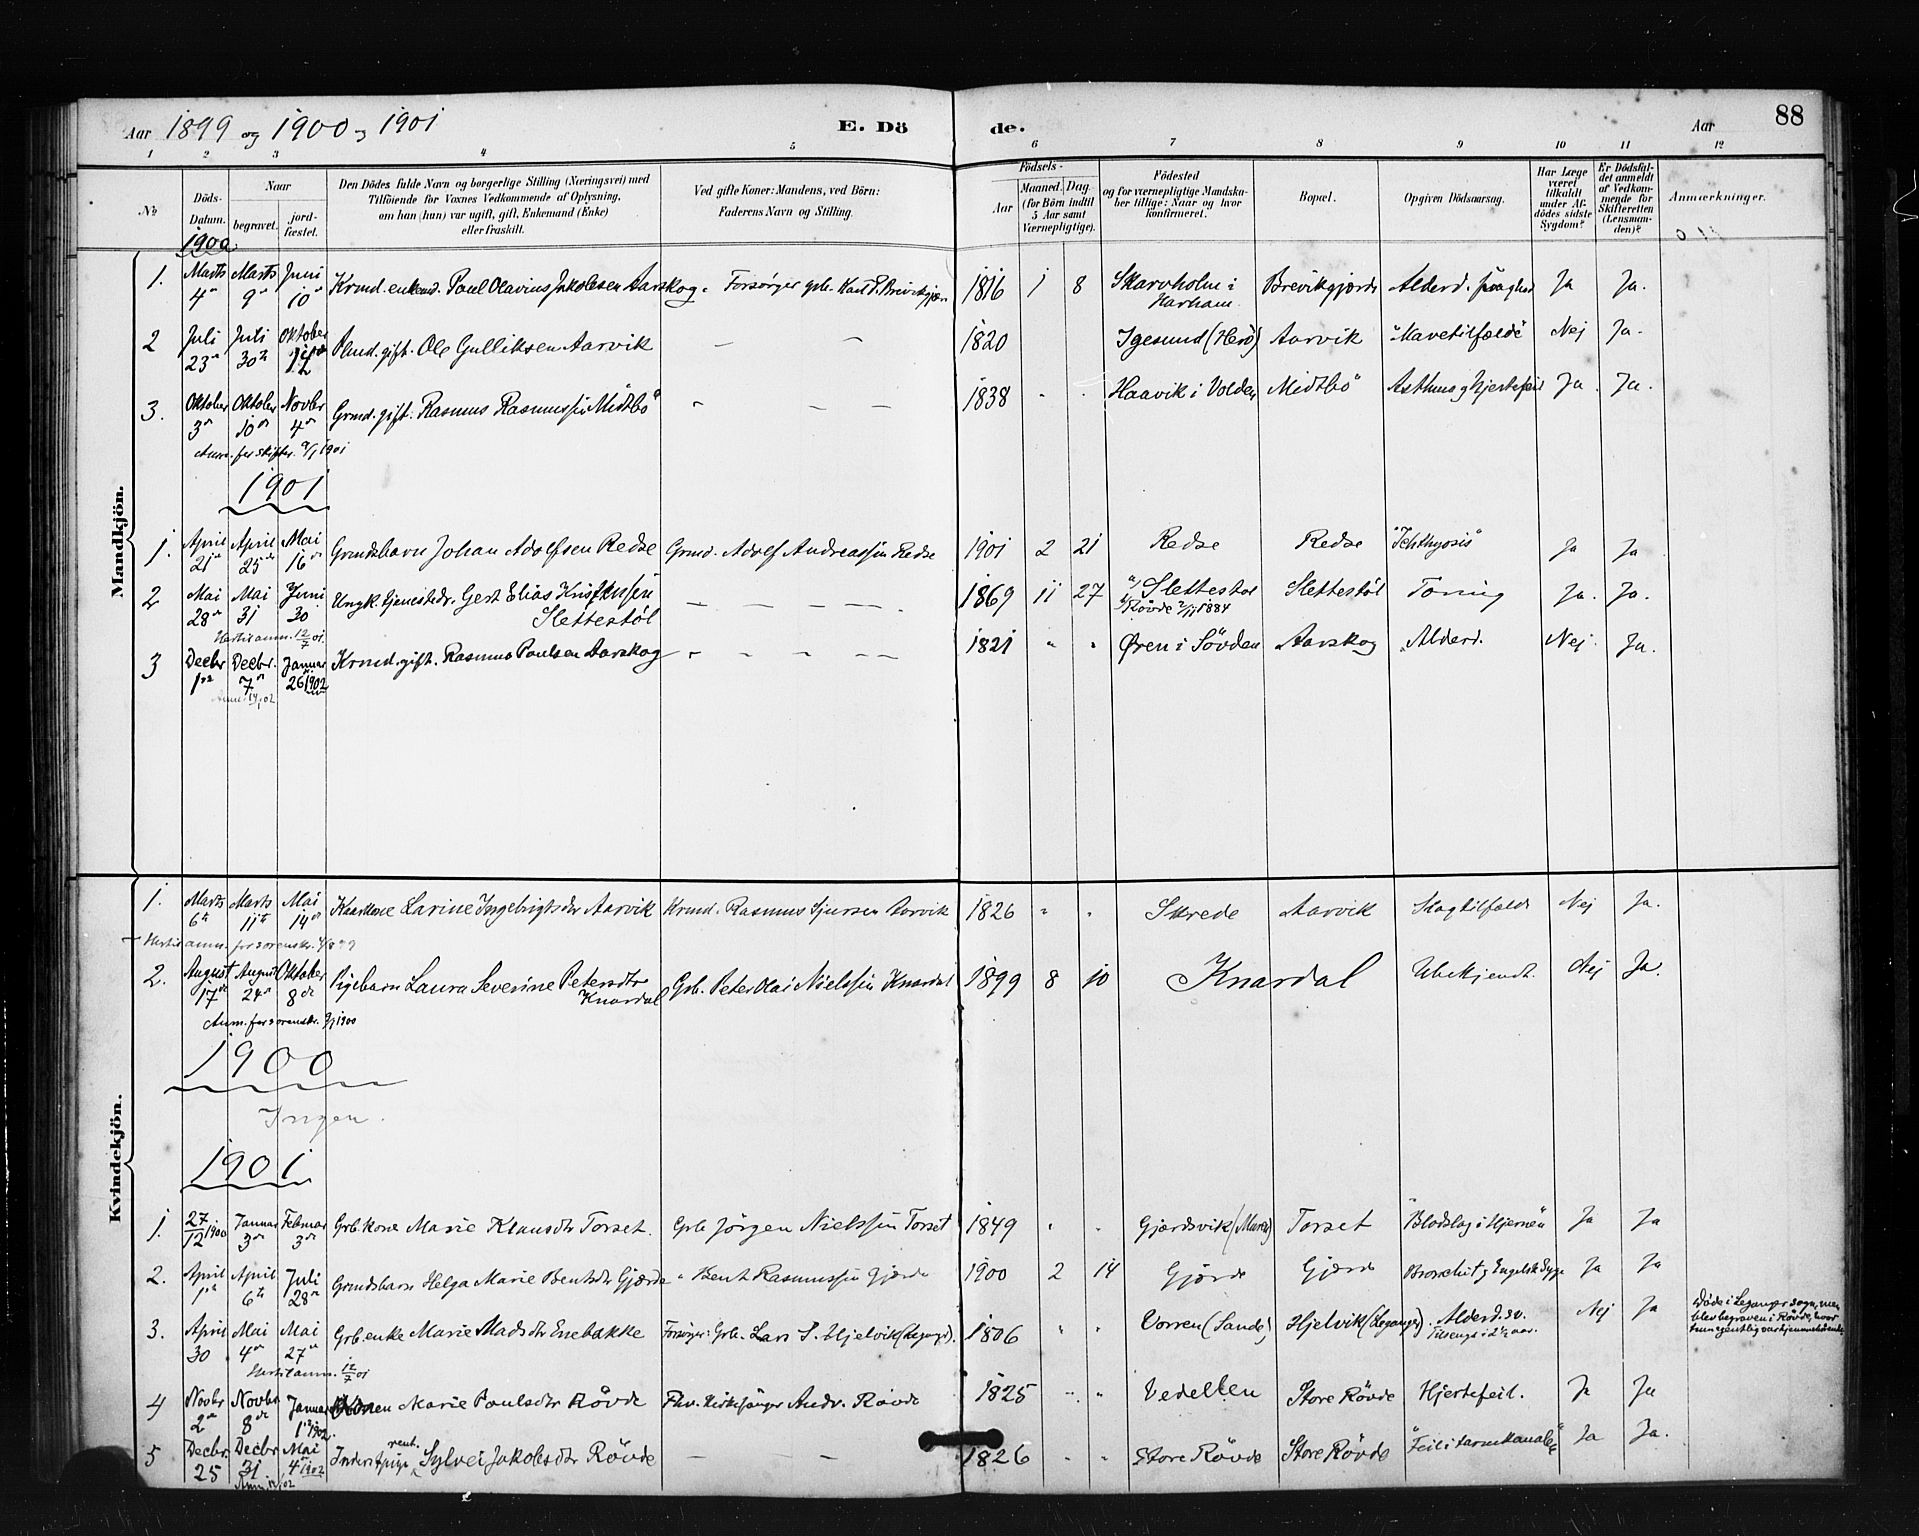 Aar 1899 og 1900 og 1901 E. Dö de. Aar 88
1 2 3 4 5 6 7 8 9 10 11 12
No. Döds-Datum. Naar begravet. jordfæstet. Den Dödes fulde Navn og borgerlige Stilling (Næringsvei) med Tilföiende for Voxnes Vedkommende af Oplysning, om han (hun) var ugift, gift, Enkemand (Enke) eller fraskilt. Ved gifte Koner: Mandens, ved Börn: Faderens Navn og Stilling. Födsels- Aar Maaned. Dag. (for Börn indtil 5 Aar samt Værnepligtige). Födested og for værnepligtige Mandskaber tillige: Naar og hvor konfirmeret. Bopæl. Opgiven Dödsaarsag. Har Læge været tilkaldt under Afdödes sidste Sygdom? Er Dödsfaldet anmeldt af Vedkommende for Skifteretten (Lensmanden)? Anmærkninger.
Mandkjön.
1900
1. Marts 4de Marts 9de Juni 10de Krmd. enkemd. Paul Olavius Jakobsen Aarskog. Forsørger grb. Karl P. Brevikgjær 1816 1 8 Skarvholm i Harham Brevikgjærde Alderd. svaghed Ja Ja.
2 Juli 23de Juli 30te Oktober gift. Ole Gulliksen Aarvik — — 1820 Igesund (Herö) Aarvik "Mavetilfælde" Nej Ja.
3. Oktober 3de Oktober 10de Novbr 4de Grmd. gift. Rasmus Rasmussen Midtbö — — 1838 " " Haavik i Volden Midtbö Asthma og hjertefeil Ja. Ja.
Anm. for skifter. 9/1 1901
1901
1. April 21 April 25de Mai 16de Grmdsbarn Johan Adolfsen Redse Grmd. Adolf Andreassen Redse 1901 2 21 Redse Redse "Ichthyosis" Ja Ja
2 Mai 28de Mai 31 Juni 30 Ungk. tjenestedr. Gert Elias Knutsen Slettestöl — — — 1869 11 27 Slettestöl Rövde 1884 Slettestöl Tæring Ja. Ja.
Hertil anm. 12/7 01.
3 Decbr 1ste Decbr. 7de Januar 26 1902 Krmd. gift. Rasmus Paulsen Aarskog — — — 1821 " " Øren i Sövden Aarskog Alderd. Nej. Ja.
Kvindekjön.
1. Marts 6te Marts 11te Mai 14de Kaarkone Larine Ingebrigtsdtr Aarvik Krmd. Rasmus Sjursen Aarvik 1826 " " Skrede Aarvik Slagtilfælde Nej Ja.
Hertil anm. for sorenskr.
2. August 17de August 24de Oktober 8de Pigebarn Laura Severine Petersdtr Knardal Grb. Peter Olai Nielssen Knardal 1899 8 10 Knardal Ubekjendt. Nej Ja.
Anm. for sorenskr. 9/1 1900
1900
Ingen.
1901
1. 27/12 1900 Januar 3de Februar 3de Grb. kone Marie Klausdtr Torset. Grb. Jörgen Nielssen Torset 1849 " " Gjærdsvik (Maroy) Torset "Blodslag i Hjernen" Ja Ja
2. April 1ste April 6te Juli 28de Grmdsbarn Helga Marie Bentsdtr Gjærde " Bent Rasmussen Gjærde 1900 2 14 Gjærde Gjærde Bronchit og Engelsk Syge Ja Ja
3. April 30 Mai 4de Mai 27de Grb. enke Marie Madsdtr Enebakke Forsörger: Grb. Lars S. Hjelvik (Leganger). 1806 " " Vorren (Sande) Hjelvik (Leganger). Alderd. sv. Tilsengs i 2½ aar. Nej Ja Döde i Leganger sogn, men blev begraven i Rövde, hvor hun egentlig var hjemmehörende
Hertil anm. 12/7 01
4 Novbr 2de Novbr 8de Januar 1902. Marie Paulsdtr Rövde Fhv. Kirkesanger Andr. Rövde 1825 " " Vedelden Store Rövde Hjertefeil. Ja Ja
5 Decbr. 25 Decbr 31 Mai 4de 1902 Inderstpige Sylvei Jakobsdtr Rövde — — 1826 " " Store Rövde Store Rövde "Feil i tarmkanalen" Ja Ja.